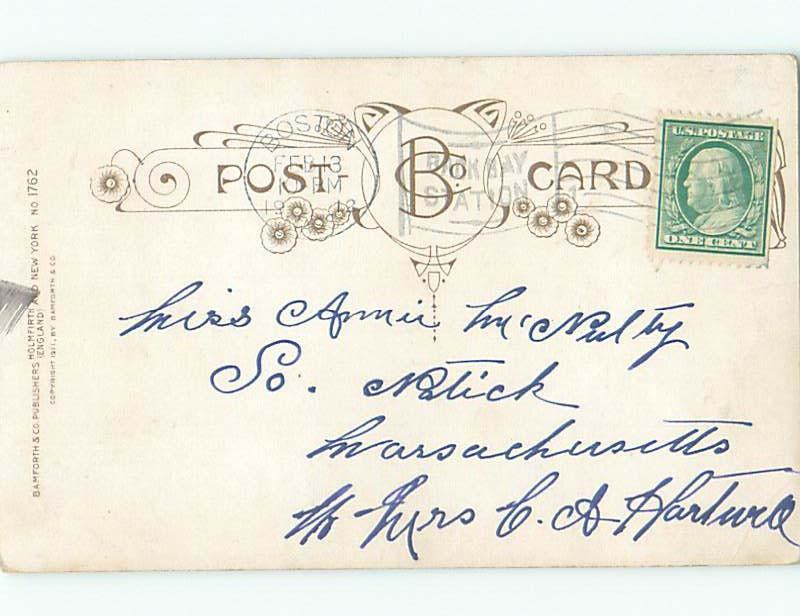 POST CARD
B Co.
BOSTON
FEB 13
PM
BACK BAY
STATION
U.S. POSTAGE
ONE CENT
Miss Annie McNulty
So. Natick
Massachusetts
Mrs C. A Hartwell
BAMFORTH & CO. PUBLISHERS HOLMFIRTH AND NEW YORK NO 1762
(ENGLAND)
COPYRIGHT 1911, BY BAMFORTH & CO.